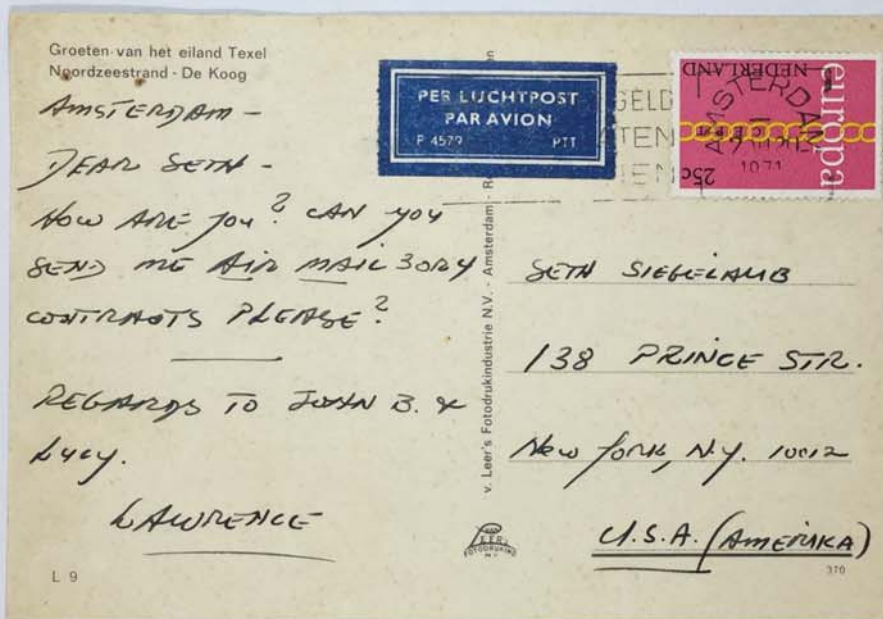 Groeten van het eiland Texel
Noordzeestrand - De Koog
AMSTERDAM -
DEAR SETH -
HOW ARE YOU? CAN YOU
SEND ME AIR MAIL 3 OR 4
CONTRACTS PLEASE?
REGARDS TO JOHN B. &
LUCY.
LAWRENCE
L 9
PER LUCHTPOST
PAR AVION
P 4579 PTT
v. Leer's Fotodrukindustrie N.V. - Amsterdam
VAN LEER'S
FOTODRUKIND
N.V.
GELD
TEN
IEN
AMSTERDAM
1971
NEDERLAND
europa
25c
SETH SIEGELAUB
138 PRINCE STR.
New York, N.Y. 10012
U.S.A. (AMERIKA)
370